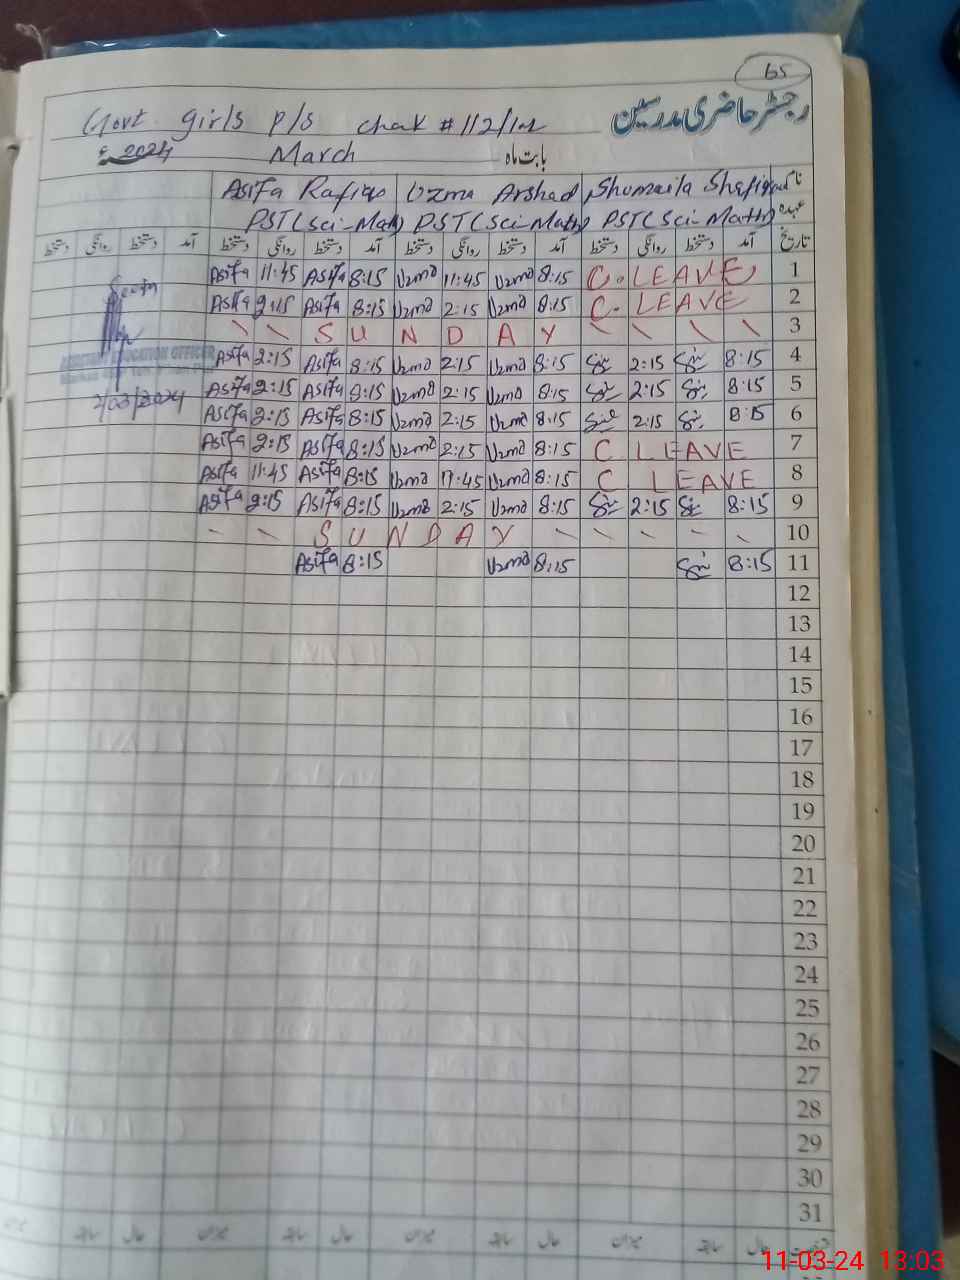 65
رجسٹر حاضری مدرسین
Govt. Girls P/S Chak # 112/12L
بابت ماہ March 2024ء
نام Shumaila Shafique Uzma Arshad Asifa Rafiqe
عہدہ PST(Sci-Math) PST(Sci-Math) PST(Sci-Math)
تاریخ آمد دستخط روانگی دستخط آمد دستخط روانگی دستخط آمد دستخط روانگی دستخط آمد دستخط روانگی دستخط
Asifa 11:45 Asifa 8:15 Uzma 11:45 Uzma 8:15 C. LEAVE 1
Asifa 2:15 Asifa 8:15 Uzma 2:15 Uzma 8:15 C. LEAVE 2
SUNDAY 3
Asifa 2:15 Asifa 8:15 Uzma 2:15 Uzma 8:15 2:15 8:15 4
Asifa 2:15 Asifa 8:15 Uzma 2:15 Uzma 8:15 2:15 8:15 5
Asifa 2:15 Asifa 8:15 Uzma 2:15 Uzma 8:15 2:15 8:15 6
Asifa 2:15 Asifa 8:15 Uzma 2:15 Uzma 8:15 C LEAVE 7
Asifa 11:45 Asifa 8:15 Uzma 11:45 Uzma 8:15 C LEAVE 8
Asifa 2:15 Asifa 8:15 Uzma 2:15 Uzma 8:15 2:15 8:15 9
SUNDAY 10
Asifa 8:15 Uzma 8:15 8:15 11
ASSISTANT EDUCATION OFFICER
2/03/2024
12
13
14
15
16
17
18
19
20
21
22
23
24
25
26
27
28
29
30
31
11-03-24 13:03